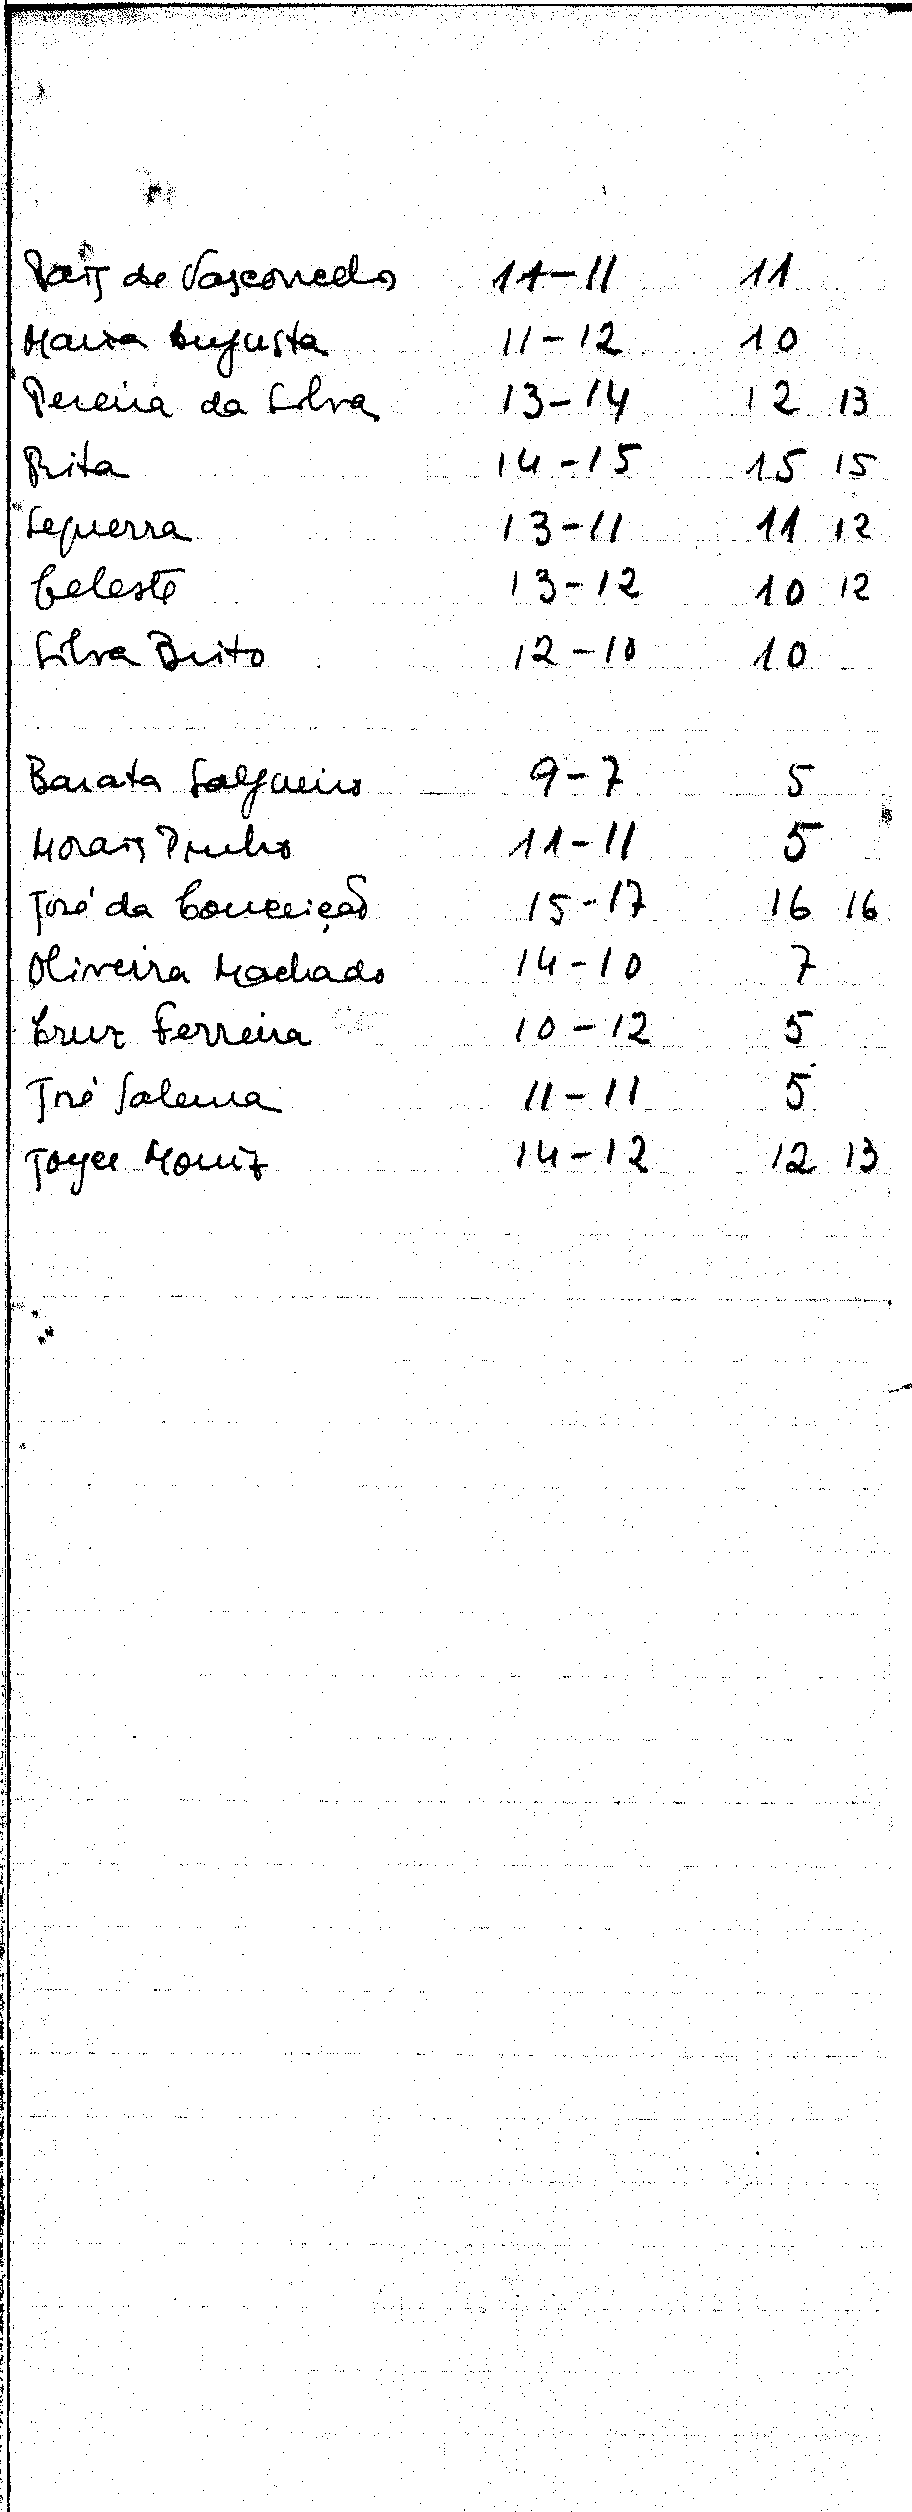 Pais de Vasconcelos 11-11 11
Maria Augusta 11-12 10
Pereira da Silva 13-14 12 13
Rita 14-15 15 15
Sequerra 13-11 11 12
Celeste 13-12 10 12
Silva Brito 12-10 10
Barata Salgueiro 9-7 5
Morais Pinho 11-11 5
José da Conceição 15-17 16 16
Oliveira Machado 14-10 7
Cruz Ferreira 10-12 5
José Salema 11-11 5
Joyce Moniz 14-12 12 13